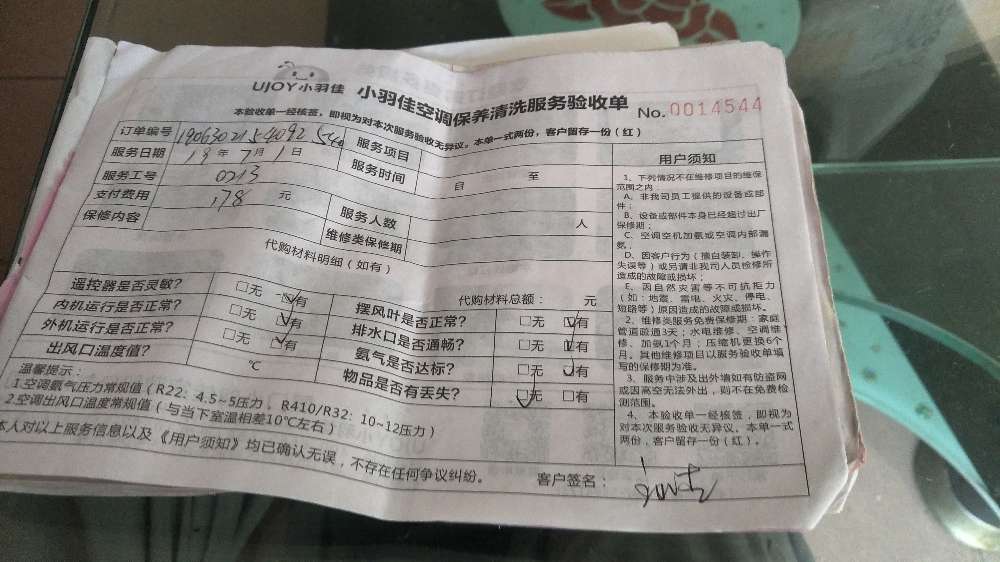 UJOY小羽佳
小羽佳空调保养清洗服务验收单
No.0014544
本验收单一经核签，即视为对本次服务验收无异议。本单一式两份，客户留存一份（红）
订单编号
服务项目
服务日期 19年7月1日
服务时间 目 至
服务工号 0213
支付费用 178 元
服务人数 人
保修内容
维修类保修期
代购材料明细（如有）
代购材料总额： 元
遥控器是否灵敏？ □无 □有
摆风叶是否正常？ □无 □有
内机运行是否正常？ □无 □有
排水口是否通畅？ □无 □有
外机运行是否正常？ □无 □有
氨气是否达标？ □无 □有
出风口温度值？ ℃
物品是否有丢失？ □无 □有
温馨提示：
1.空调氨气压力常规值（R22：4.5~5压力，R410/R32：10~12压力）
2.空调出风口温度常规值（与当下室温相差10℃左右）
本人对以上服务信息以及《用户须知》均已确认无误，不存在任何争议纠纷。
客户签名：
用户须知
1、下列情况不在维修项目的维保
范围之内：
A、非我司员工提供的设备或部
件；
B、设备或部件本身已经超过出厂
保修期；
C、空调空机加氨或空调内部漏
氨；
D、因客户行为（擅自装卸、操作
失误等）或另请非我司人员检修所
造成的故障或损坏；
E、因自然灾害等不可抗拒力
（如：地震、雷电、火灾、停电、
短路等）原因造成的故障或损坏。
2、维修类服务免费保修期：家庭
管道疏通3天；水电维修、空调维
修、加氨1个月；压缩机更换6个
月。其他维修项目以服务验收单填
写的保修期为准。
3、服务中涉及出外墙如有防盗网
或因高空无法外出，则不在免费检
测范围。
4、本验收单一经核签，即视为
对本次服务验收无异议。本单一式
两份，客户留存一份（红）。